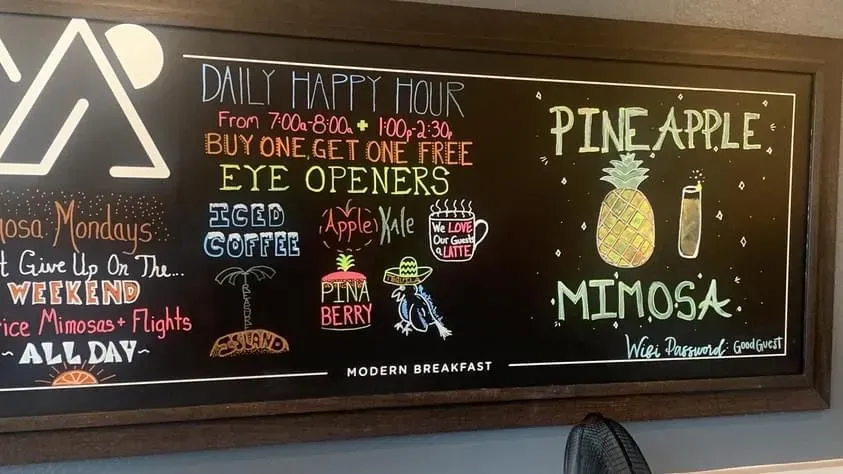 Mondays
Give Up On The...
WEEKEND
Mimosas + Flights
~ALL DAY~
DAILY HAPPY HOUR
From 7:00a-8:00a + 1:00p-2:30p
BUY ONE, GET ONE FREE
EYE OPENERS
ICED
COFFEE
Apple Kale
We LOVE
Our Guests
a LATTE
ISLAND
PINA
BERRY
TEQUILA
MODERN BREAKFAST
PINEAPPLE
MIMOSA
Wifi Password: GoodGuest